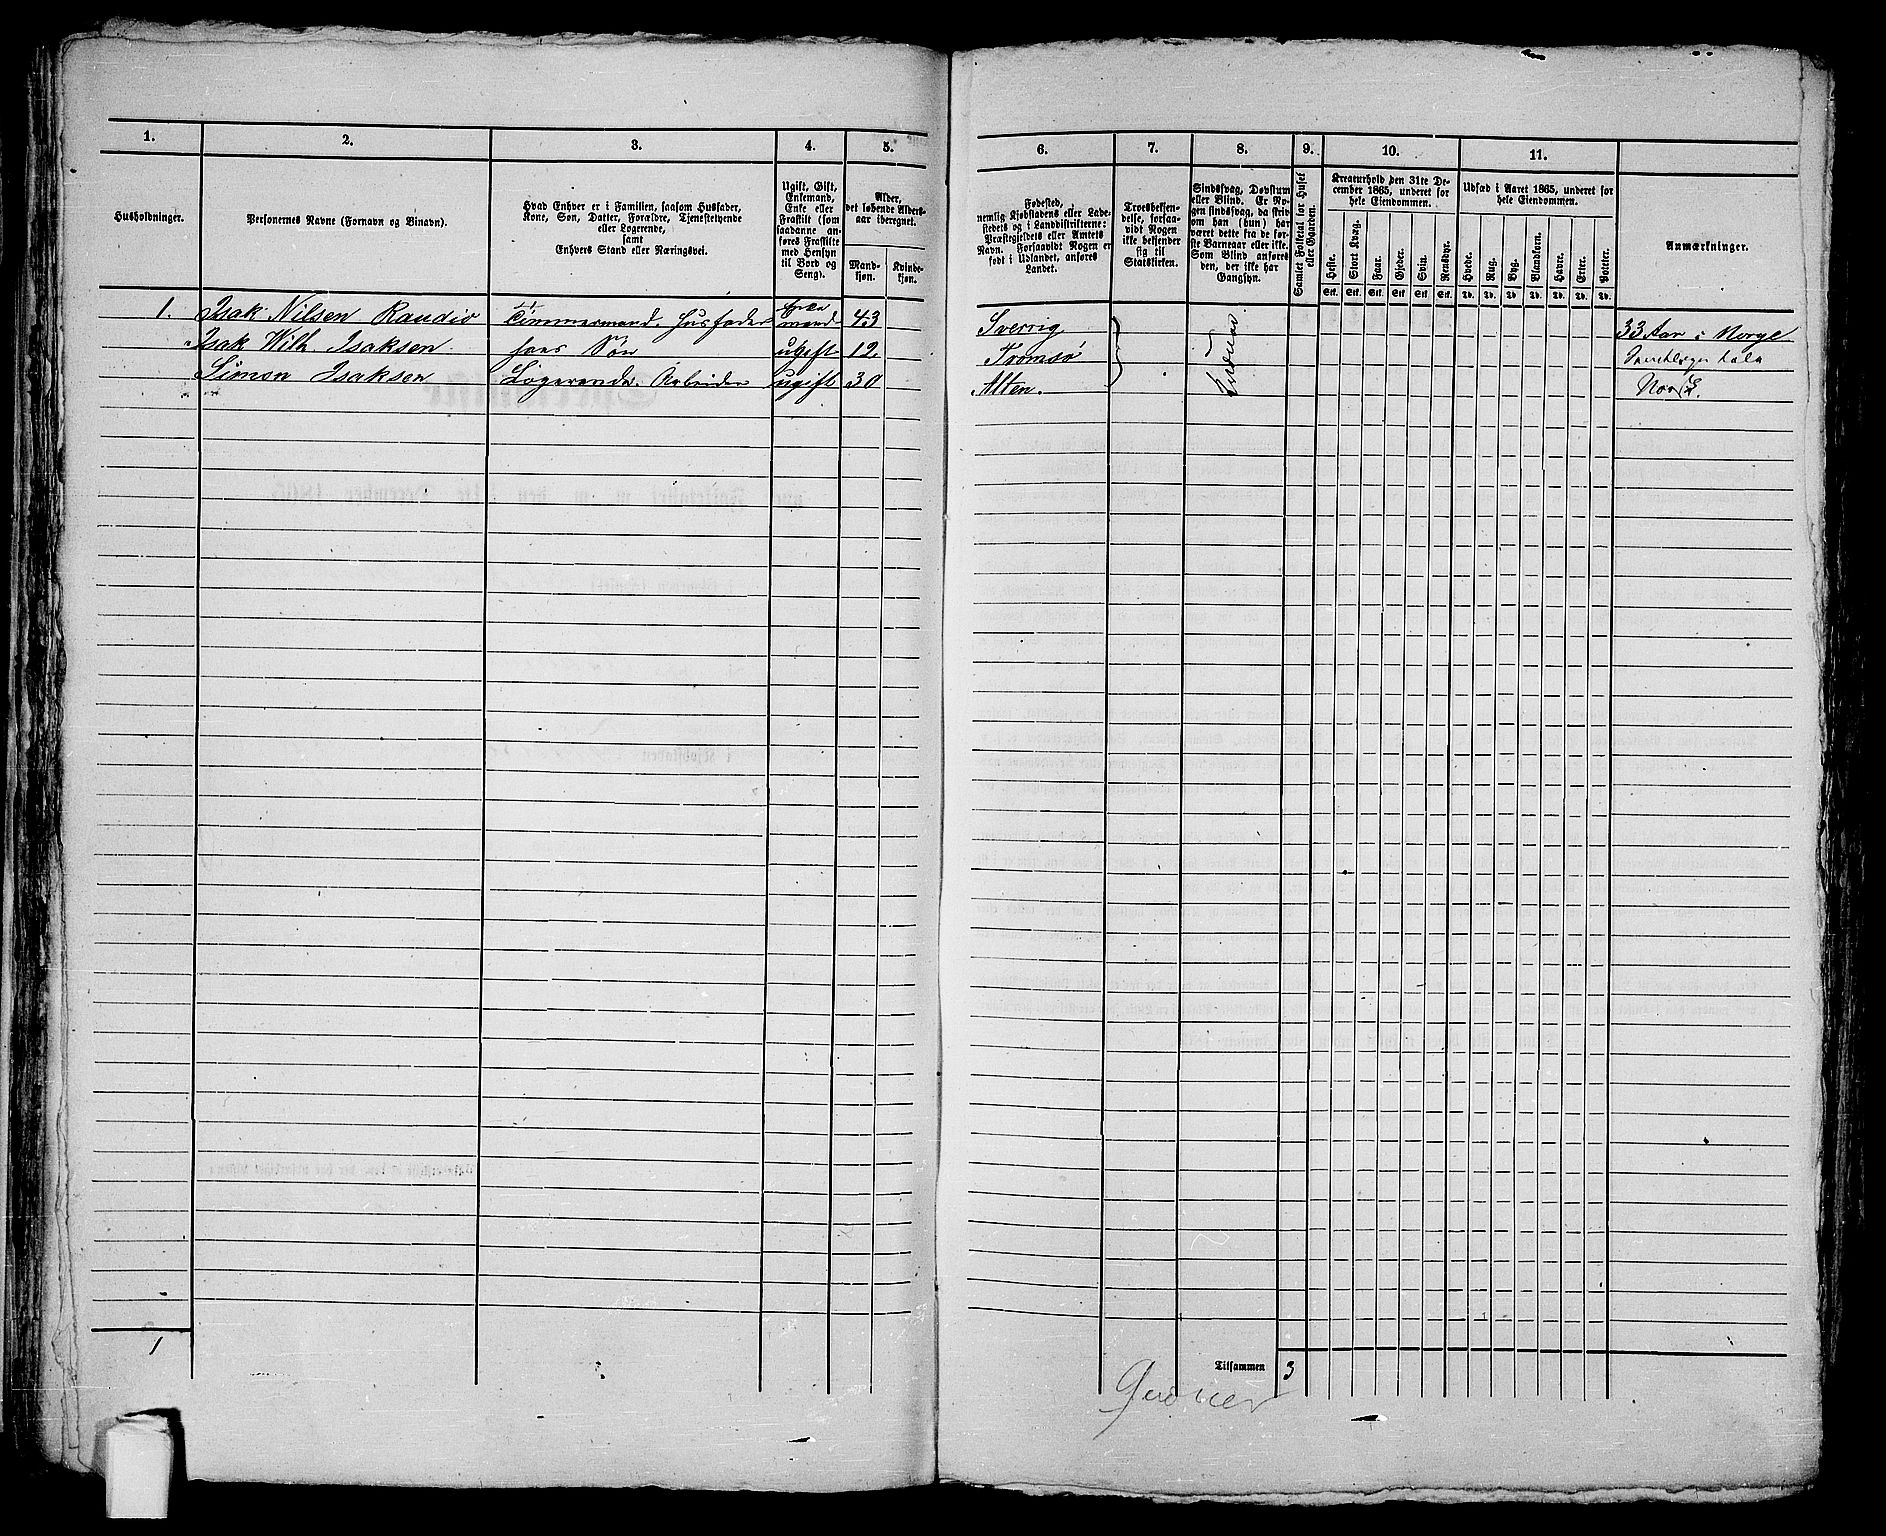 1.
2.
3.
4.
5.
Husholdninger.
Personernes Navne (Fornavn og Binavn).
Hvad Enhver er i Familien, saasom Husfader,
Kone, Søn, Datter, Forældre, Tjenestetyende
eller Logerende,
samt
Enhvers Stand eller Næringsvei.
Ugift, Gift,
Enkemand,
Enke eller
Fraskilt (som
saadanne an-
føres Fraskilte
med Hensyn
til Bord og
Seng).
Alder,
det løbende Alders-
aar iberegnet.
Mand-
kjøn.
Kvinde-
kjøn.
1. Isak Nilsen Raudio Tømmermand. Husfader Enke mand 43
Isak Wilh Isaksen hans Søn ugift 12
Simon Isaksen Logerende. Arbeider ugift 30
1
6.
7.
8.
9.
10.
11.
Fødested,
nemlig Kjøbstadens eller Lade-
stedets og i Landdistrikterne:
Præstegjeldets eller Amtets
Navn. Forsaavidt Nogen er
født i Udlandet, anføres
Landet.
Troesbekjen-
delse, forsaa-
vidt Nogen
ikke bekjender
sig til
Statskirken.
Sindssvag, Døvstum
eller Blind. Er No-
gen sindssvag, da skriv
om han (hun) har
været dette fra de før-
ste Barneaar eller ikke.
Som Blind anføres
den, der ikke har
Gangsyn.
Samlet Folketal for Huset
eller Gaarden.
Kreaturhold den 31te De-
cember 1865, underet for
hele Eiendommen.
Heste. Stort Kvæg. Faar. Gjeder. Svin. Rensdyr.
Stk. Stk. Stk. Stk. Stk. Stk.
Udsæd i Aaret 1865, underet for
hele Eiendommen.
Hvede. Rug. Byg. Blandkorn. Havre. Erter. Poteter.
Td. Td. Td. Td. Td. Td. Td.
Anmærkninger.
Sverrig 33 Aar i Norge
Tromsø
Alten. Norsk.
Tilsammen 3